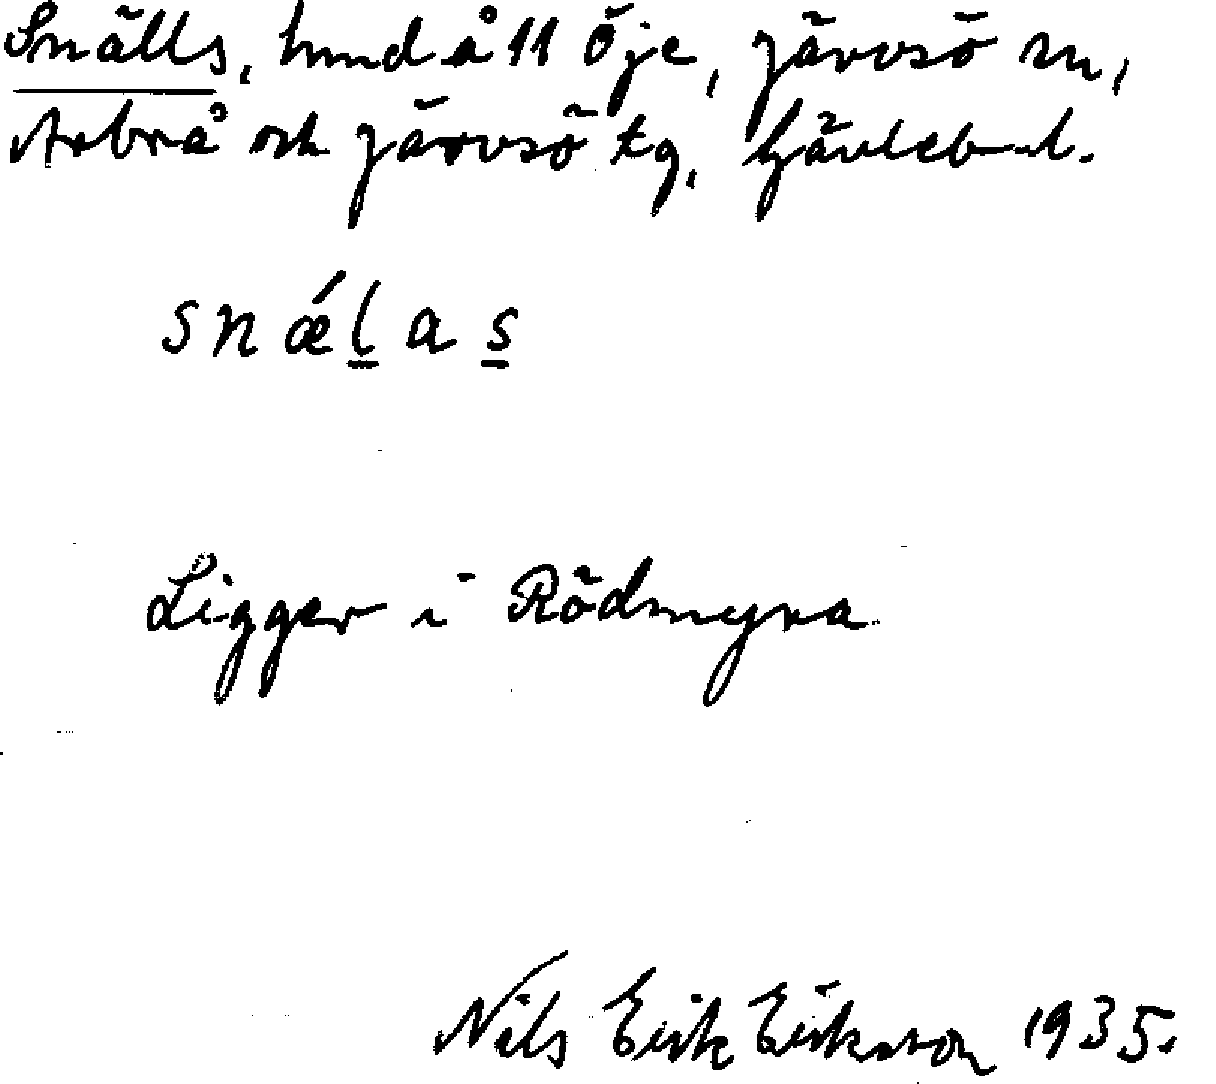 Snälls, hmd å 11 Öje, Järvsö sn,
Arbrå och Järvsö tg, Gävleb. l.
snǽlas
Ligger i Rödmyra
Nils Erik Eriksson 1935.